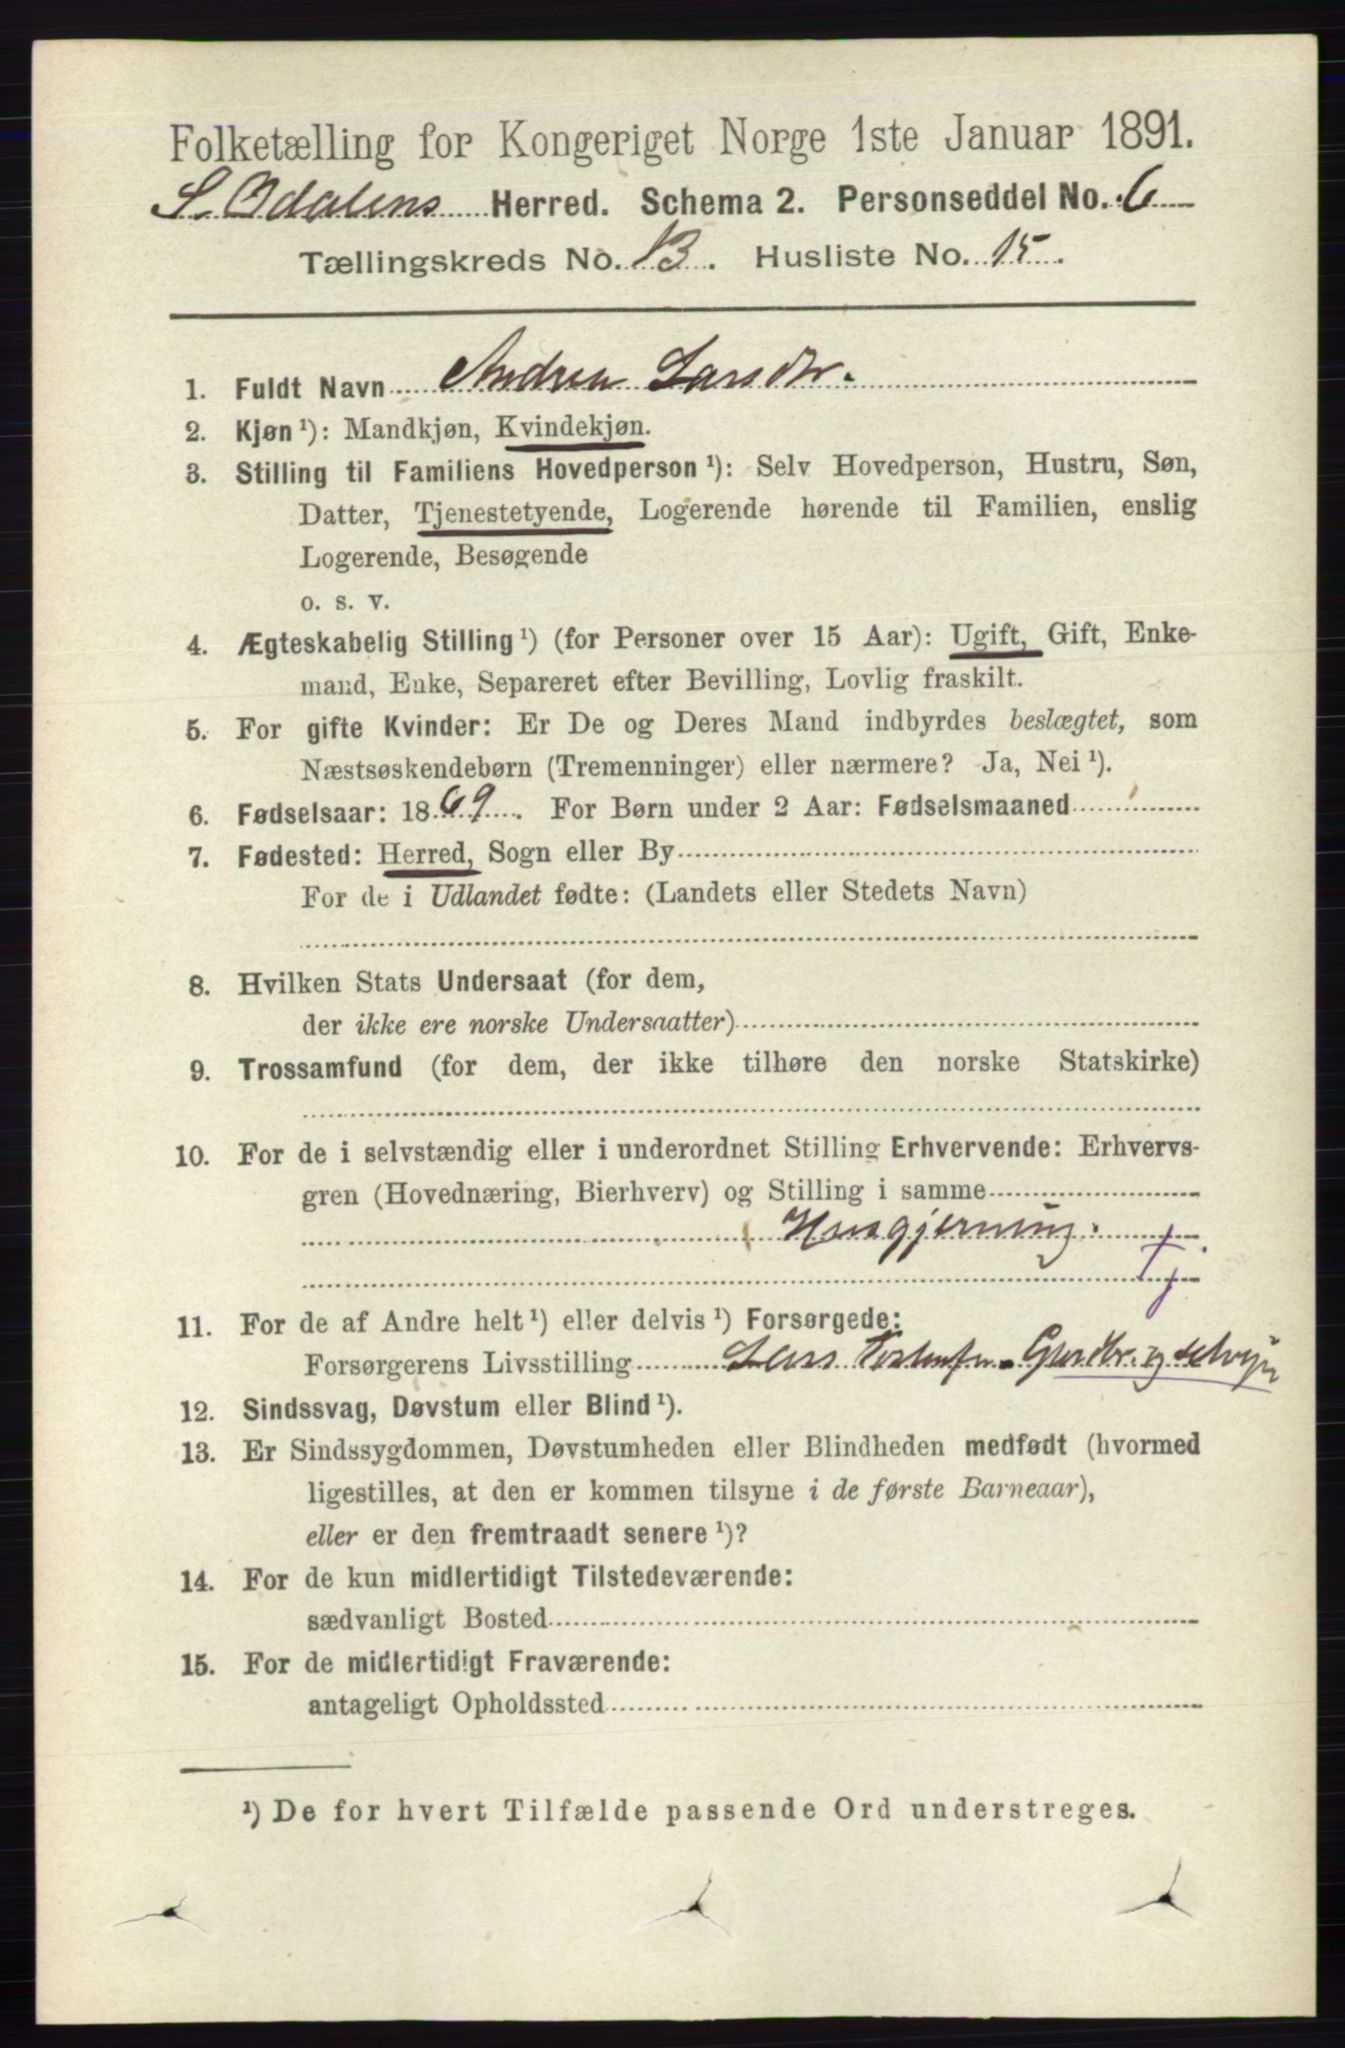 Folketælling for Kongeriget Norge 1ste Januar 1891.
S. Odalens Herred. Schema 2. Personseddel No. 6
Tællingskreds No. 13. Husliste No. 15.
1. Fuldt Navn Andrea Larsdtr.
2. Kjøn ¹): Mandkjøn, Kvindekjøn.
3. Stilling til Familiens Hovedperson ¹): Selv Hovedperson, Hustru, Søn,
Datter, Tjenestetyende, Logerende hørende til Familien, enslig
Logerende, Besøgende
o. s. v.
4. Ægteskabelig Stilling ¹) (for Personer over 15 Aar): Ugift, Gift, Enke-
mand, Enke, Separeret efter Bevilling, Lovlig fraskilt.
5. For gifte Kvinder: Er De og Deres Mand indbyrdes beslægtet, som
Næstsøskendebørn (Tremenninger) eller nærmere? Ja, Nei ¹).
6. Fødselsaar: 1869. For Børn under 2 Aar: Fødselsmaaned
7. Fødested: Herred, Sogn eller By
For de i Udlandet fødte: (Landets eller Stedets Navn)
8. Hvilken Stats Undersaat (for dem,
der ikke ere norske Undersaatter)
9. Trossamfund (for dem, der ikke tilhøre den norske Statskirke)
10. For de i selvstændig eller i underordnet Stilling Erhvervende: Erhvervs-
gren (Hovednæring, Bierhverv) og Stilling i samme
Husgjerning.
Tj.
11. For de af Andre helt ¹) eller delvis ¹) Forsørgede:
Forsørgerens Livsstilling Lars Gbrdbr. og selvejer
12. Sindssvag, Døvstum eller Blind ¹).
13. Er Sindssygdommen, Døvstumheden eller Blindheden medfødt (hvormed
ligestilles, at den er kommen tilsyne i de første Barneaar),
eller er den fremtraadt senere ¹)?
14. For de kun midlertidigt Tilstedeværende:
sædvanligt Bosted
15. For de midlertidigt Fraværende:
antageligt Opholdssted
¹) De for hvert Tilfælde passende Ord understreges.